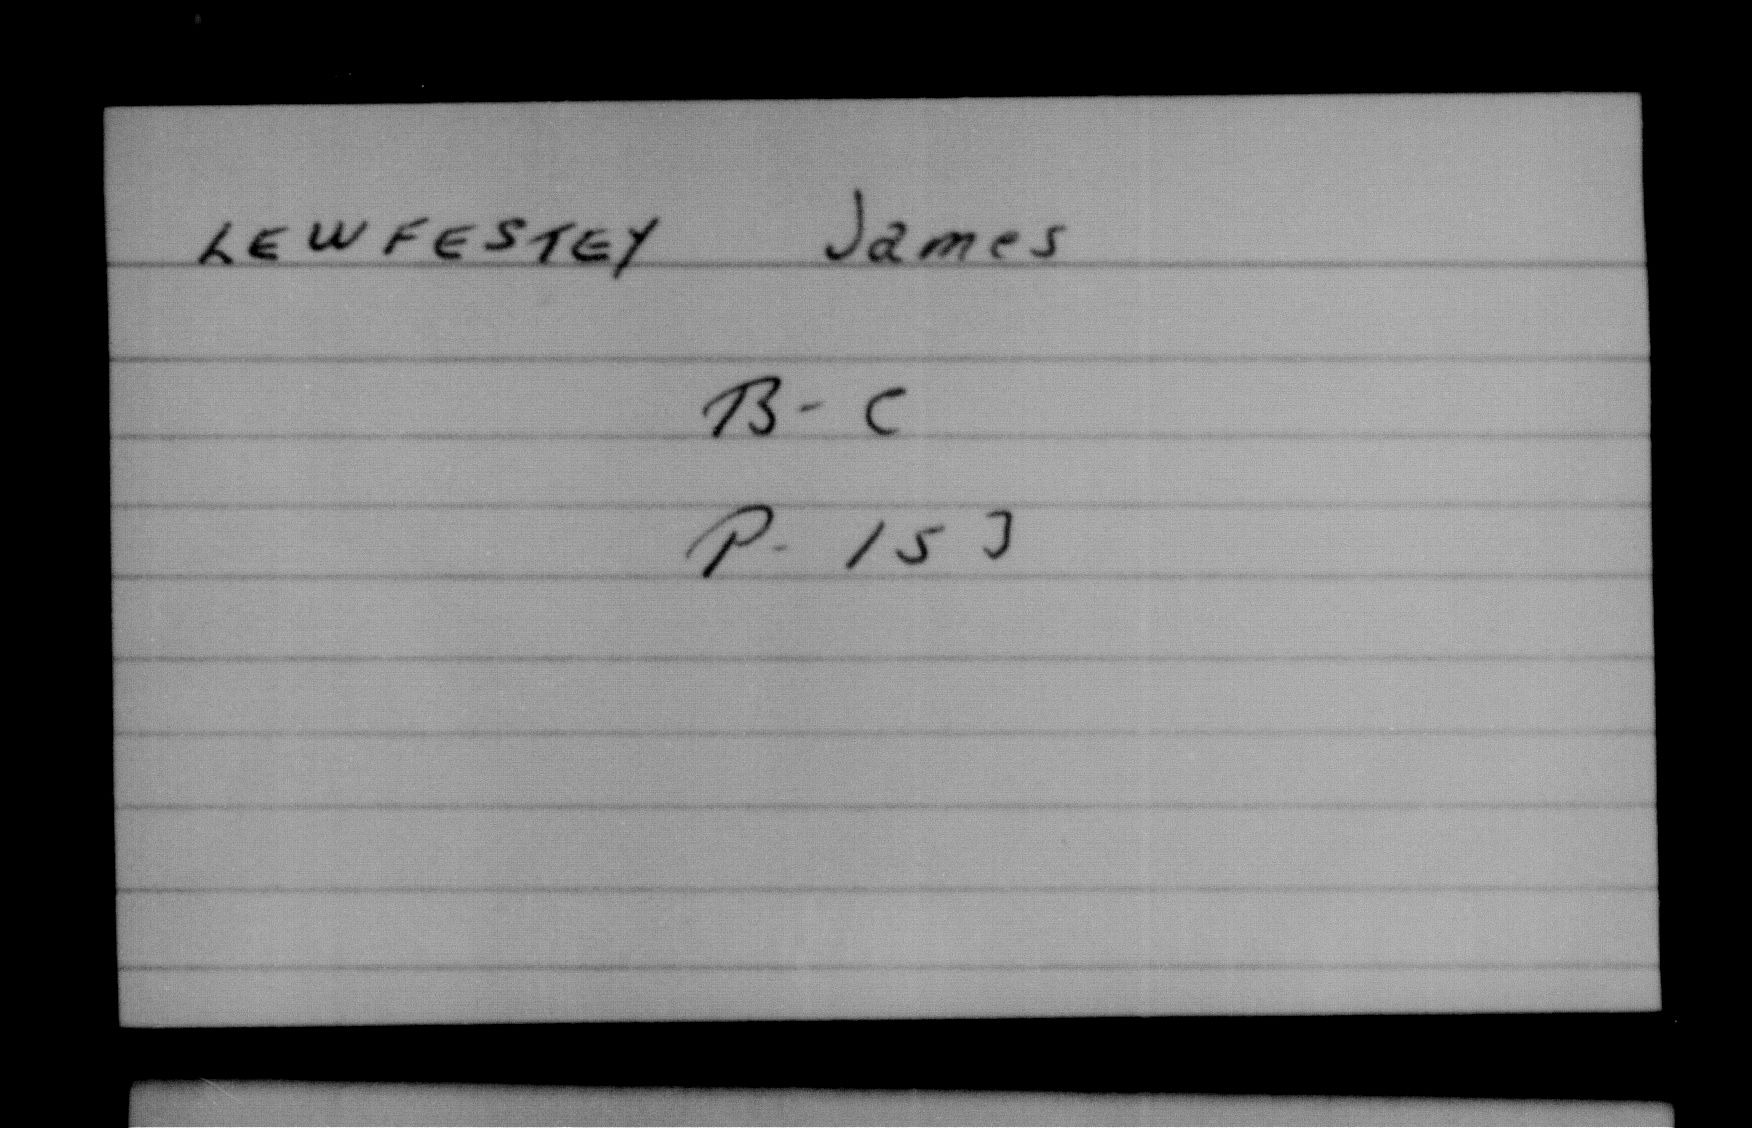 LEWFESTEY James
B- C
P- 153